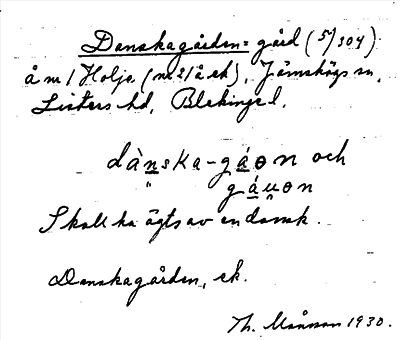 Danskagården = gård (5/304)
å m/ Holje (nr 21 å ek), Jämshögs sn,
Listers hd, Blekinge l.
dànska-gáɵn och
gáu̯ɵn
Skall ha ägts av en dansk.
Danskagården, ek.
Th. Månsson 1930.